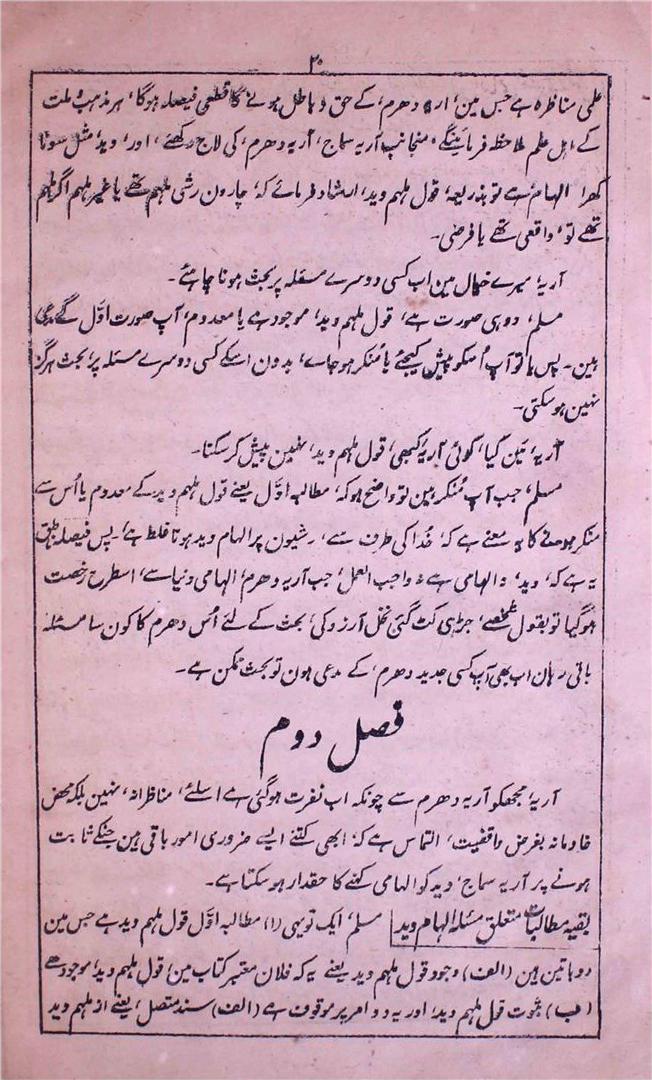 ۲۰
علمی مناظرہ ہے جس مین، اریہ دھرم، کے حق و باطل ہونے کا قطعی فیصلہ ہوگا، ہر مذہب و ملت
کے اہل علم ملاحظہ فرمائینگے، منجانب آریہ سماج، آریہ دھرم، کی لاج رکھئے، اور، وید، مثل سونا
کھرا الہام ہے تو بذریعہ، قول ملہم وید، ارشاد فرمائے کہ، چارون رشی ملہم تھے یا غیر ملہم اگر ملہم
تھے تو، واقعی تھے یا فرضی۔
آریہ، میرے خیال مین اب کسی دوسرے مسئلہ پر بحث ہونا چاہئے۔
مسلم، دو ہی صورت ہے، قول ملہم وید، موجود ہے یا معدوم، آپ صورت اوّل کے مدعی
ہین۔ پس یا تو آپ اُسکو پیش کیجئے یا مُنکر ہو جاے، بدون اسکے کسی دوسرے مسئلہ پر، بحث ہرگز
نہین ہوسکتی۔
آریہ، مَین گیا، کوئی آریہ، کبھی، قول ملہم وید، نہین پیش کرسکتا۔
مسلم، جب آپ مُنکر ہین تو واضح ہو کہ، مطالبہ اوّل یعنے قول ملہم وید کے معدوم یا اُس سے
منکر ہوجانے کا یہ معنے ہے کہ، خُدا کی طرف سے، رشیون پر الہام وید ہونا غلط ہے، پس فیصلہ
یہ ہے کہ، وید، نہ الہامی ہے نہ واجب العمل، جب آریہ دھرم، الہامی دنیا سے، اسطرح رخصت
ہوگیا تو بقول شخصے، جڑہی کٹ گئی نخل آرزو کی، بحث کے لئے اُس دھرم کا کون سا مسئلہ
باقی رہا، ہان اب بھی آپ کسی جدید دھرم، کے مدعی ہون تو بحث ممکن ہے۔
فصل دوم
آریہ، مجھکو آریہ دھرم سے چونکہ اب نفرت ہوگئی ہے اسلئے، مناظرانہ، نہین بلکہ محض
خادمانہ بغرض واقفیت، التماس ہے کہ، ابھی کتنے ایسے ضروری امور باقی ہین جنکے ثابت
ہونے پر آریہ سماج، وید کو الہامی کہنے کا حقدار ہوسکتا ہے۔
بقیہ مطالبات متعلق مسئلہ الہام وید مسلم، ایک تو یہی (۱) مطالبہ اوّل قول ملہم وید ہے جس مین
دو باتین ہین (الف) وجود قول ملہم وید یعنے یہ کہ فلان معتبر کتاب مین، قول ملہم وید، موجود ہے
(ب) ثبوت قول ملہم وید، اور یہ دو امر پر موقوف ہے (الف) سند متصل، یعنے از ملہم وید